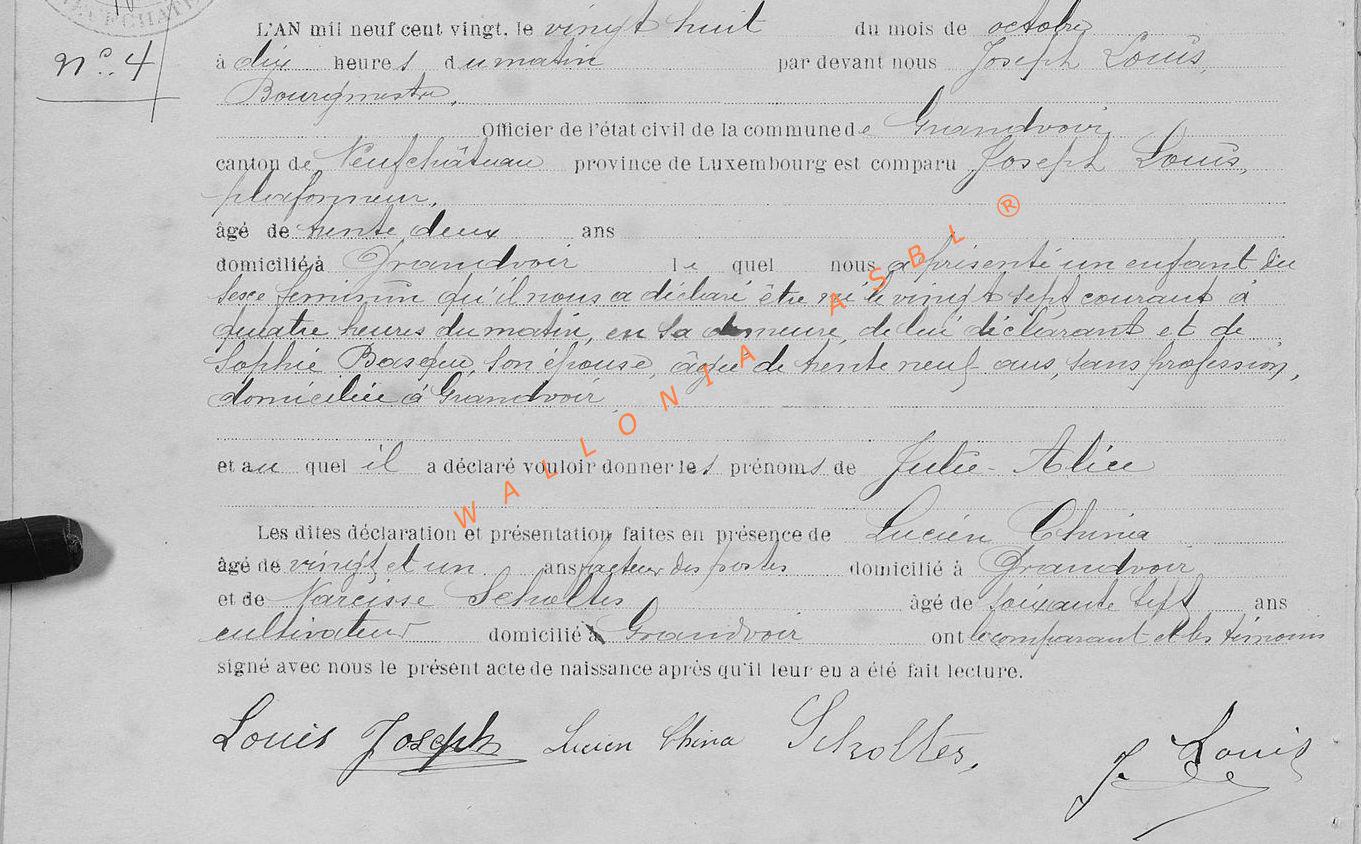 L'AN mil neuf cent vingt, le vingt huit du mois de octobre
n° 4
à dix heures du matin par devant nous Joseph Louis,
Bourgmestre,
Officier de l'état civil de la commune de Grandvoir
canton de Neufchâteau province de Luxembourg est comparu Joseph Louis,
plafonneur,
âgé de trente deux ans
domicilié à Grandvoir le quel nous a présenté un enfant du
sexe féminin qu'il nous a déclaré être né le vingt sept courant à
quatre heures du matin, en sa demeure, de lui déclarant et de
Sophie Basque, son épouse, âgée de trente neuf ans, sans profession,
domiciliée à Grandvoir
et au quel il a déclaré vouloir donner les prénoms de Julie-Alice
Les dites déclaration et présentation faites en présence de Lucien China
âgé de vingt et un ans facteur des postes domicilié à Grandvoir
et de Narcisse Scholtes âgé de soixante sept ans
cultivateur domicilié à Grandvoir ont le comparant et les témoins
signé avec nous le présent acte de naissance après qu'il leur en a été fait lecture.
Louis Joseph Lucien China Scholtes, J. Louis
WALLONIA ASBL ®